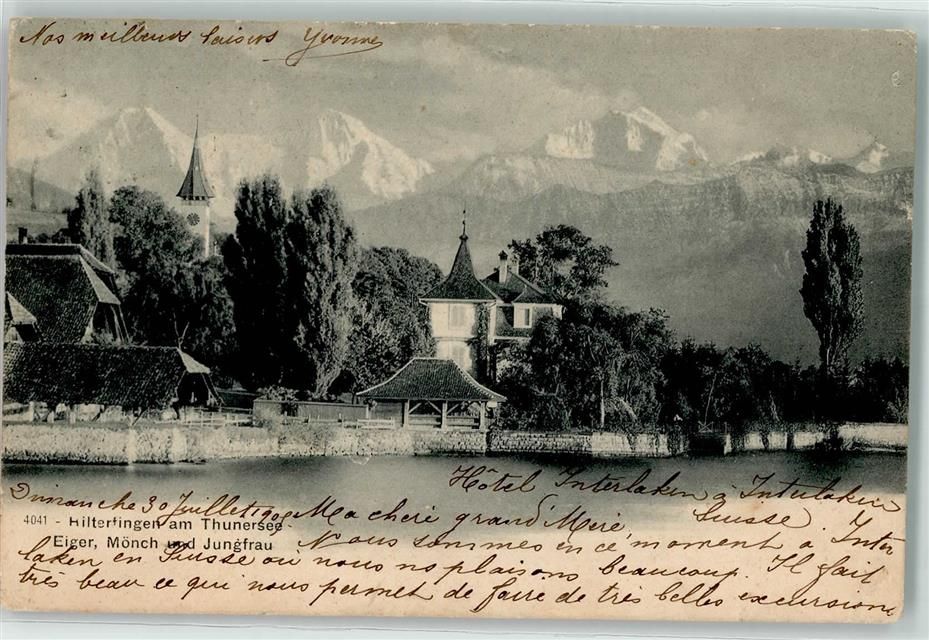 Nos meilleurs baisers Yvonne
Hôtel Interlaken à Interlaken
Suisse
Dimanche 30 Juillet 1905 Ma chère grand'Mère
4041 - Hilterfingen am Thunersee
Eiger, Mönch und Jungfrau
Nous sommes en ce moment à Inter
laken en Suisse où nous nous plaisons beaucoup. Il fait
très beau ce qui nous permet de faire de très belles excursions